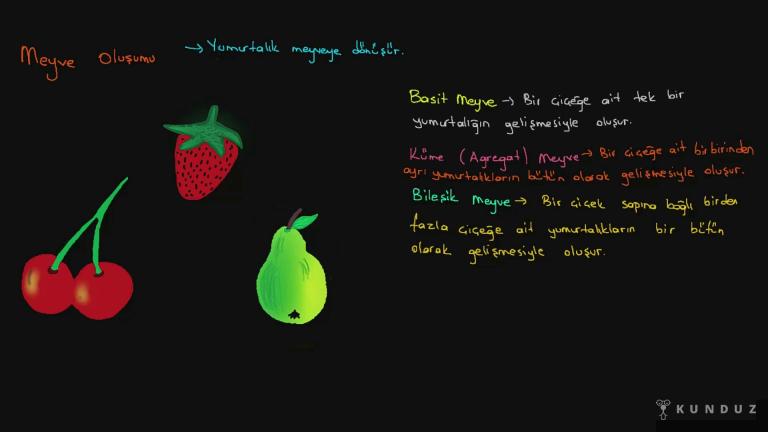 Meyve Oluşumu → Yumurtalık meyveye dönüşür.
Basit Meyve → Bir çiçeğe ait tek bir
yumurtalığın gelişmesiyle oluşur.
Küme (Agregat) Meyve → Bir çiçeğe ait birbirinden
ayrı yumurtalıkların bütün olarak gelişmesiyle oluşur.
Bileşik Meyve → Bir çiçek sapına bağlı birden
fazla çiçeğe ait yumurtalıkların bir bütün
olarak gelişmesiyle oluşur.
KUNDUZ